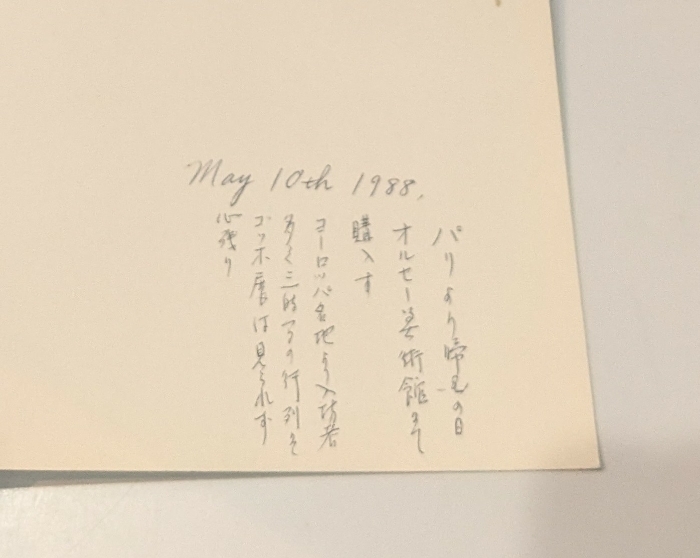 May 10th 1988.
パリより帰宅の日
オルセー美術館にて
購入す
ヨーロッパ各地より入訪者
多く三時間の行列で
ゴッホ展は見られず
心残り